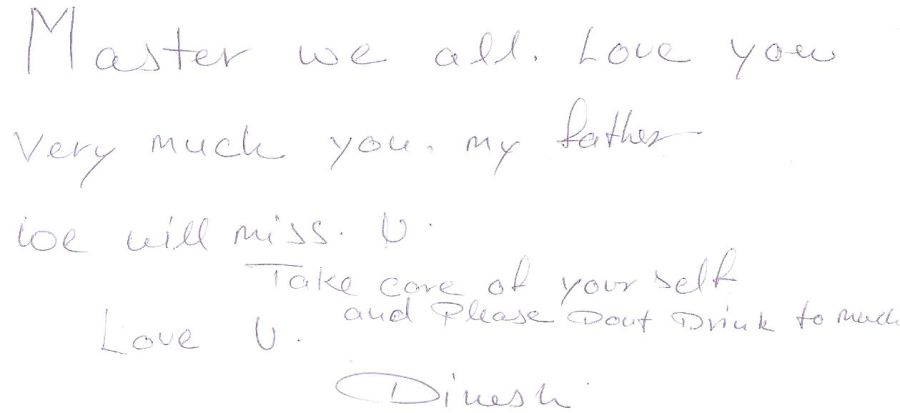 Master we all. Love you
very much you. my father
we will miss. U.
Take care of your self
and Please Dont Drink to much
Love U.
Dinesh